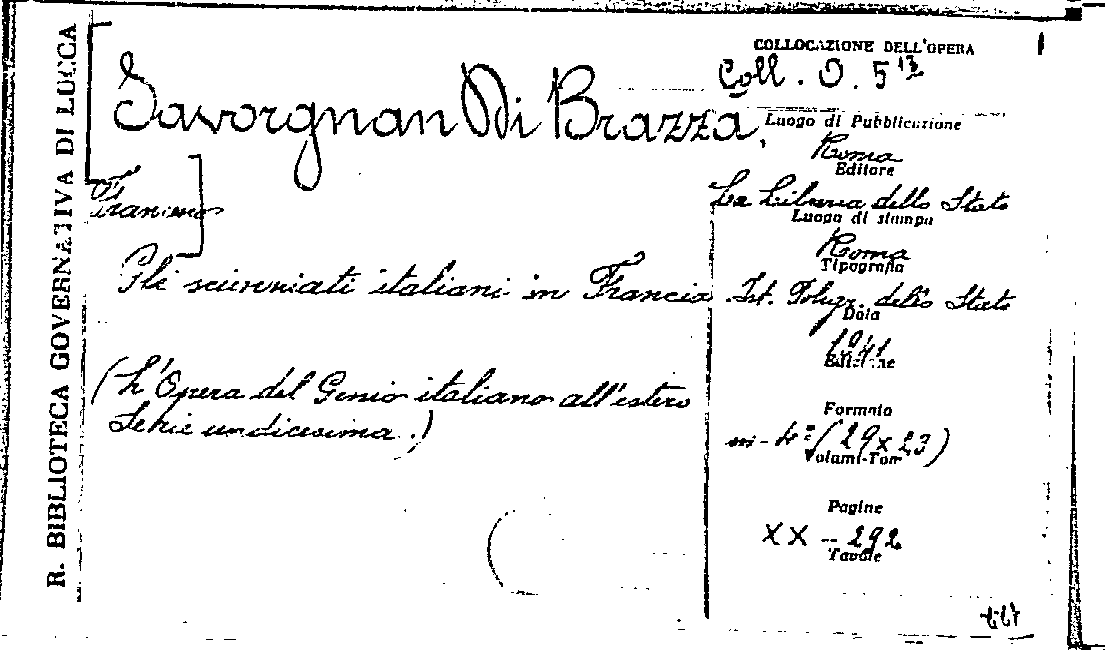 R. BIBLIOTECA GOVERNATIVA DI LUCCA
COLLOCAZIONE DELL'OPERA
Coll. O. 5 13
Savorgnan Di Brazzà,
Luogo di Pubblicazione
Roma
Editore
Francesco
La Libreria dello Stato
Luogo di stampa
Roma
Tipografia
Gli scienziati italiani in Francia
Ist. Poligr. dello Stato
Data
1941
Edizione
(L'Opera del Genio italiano all'estero
Serie undicesima.)
Formato
in-4º (29x23)
Volumi-Tomi
Pagine
XX - 292
Tavole